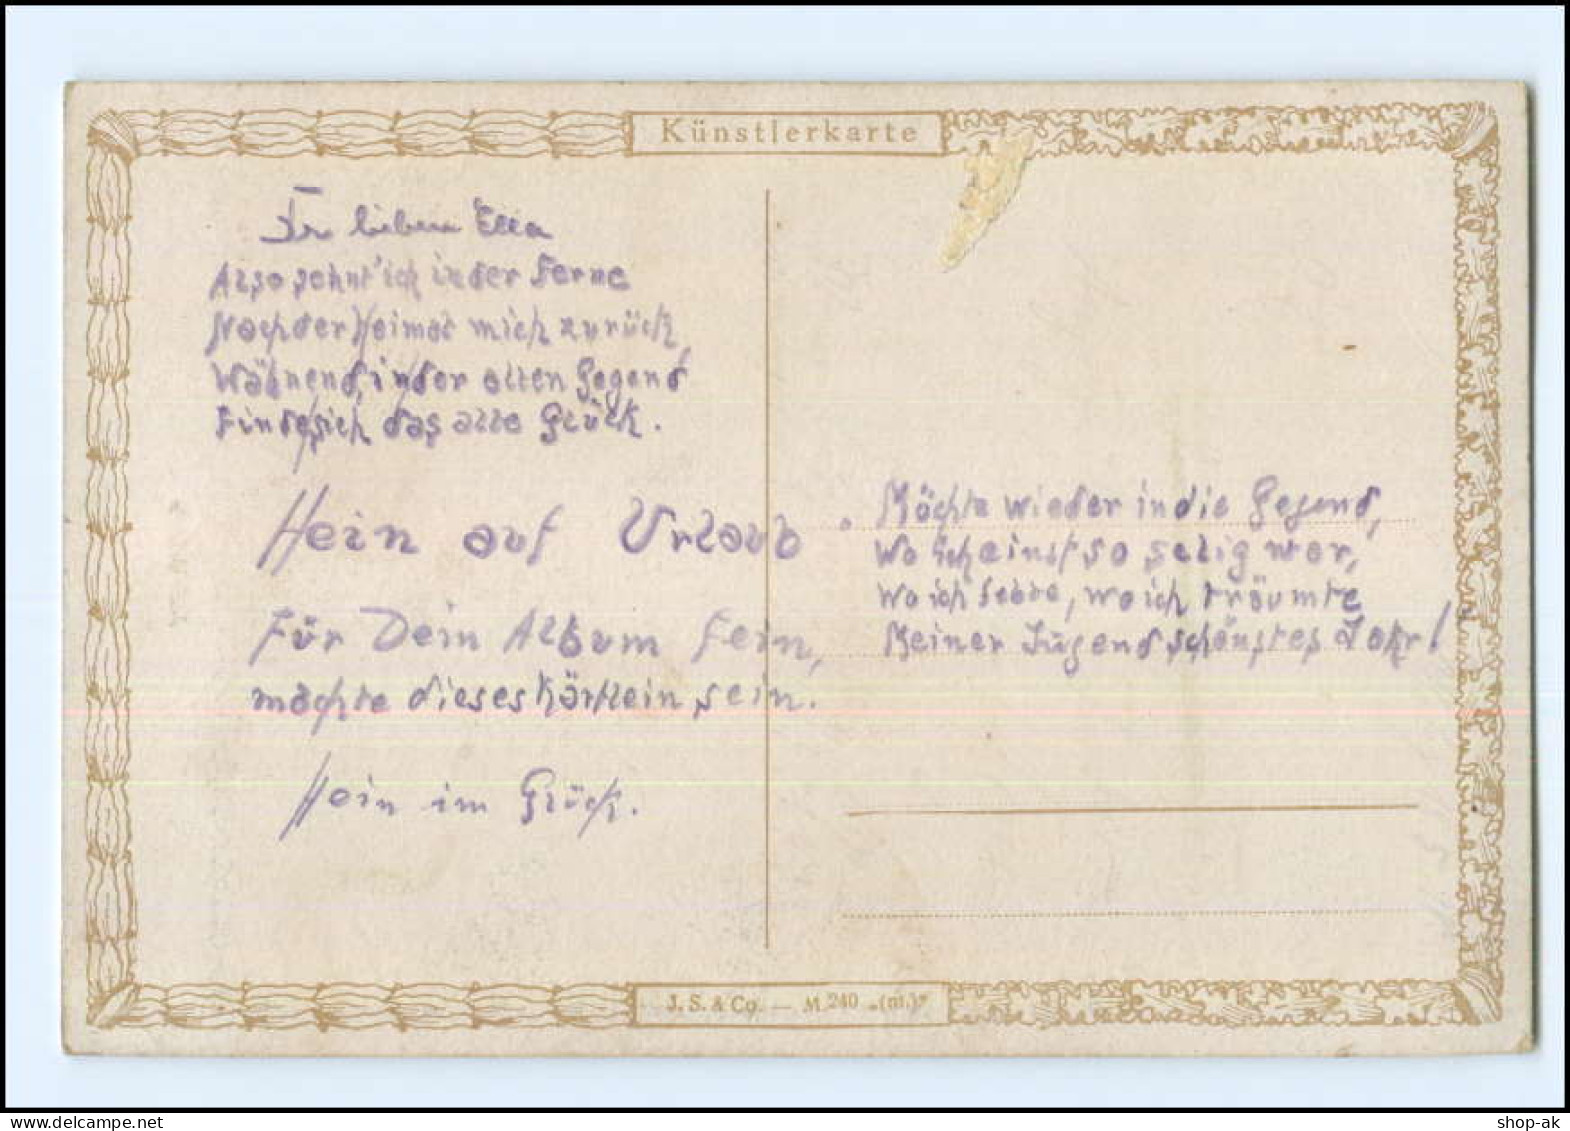 Künstlerkarte
lieben Ella
Also sehnt' ich in der Ferne
Nach der Heimat mich zurück,
Wähnend, in der alten Gegend
Finde sich das alte Glück.
Hein auf Urlaub.
Für Dein Album fein,
möchte dieses Kärtlein sein.
Hein im Glück.
Möchte wieder in die Gegend,
Wo ich einst so selig war,
Wo ich lebte, wo ich träumte
Meiner Jugend schönstes Jahr!
J. S. & Co. — M. 240 (m.)
shop-ak